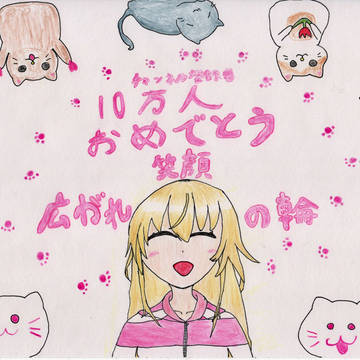 チャンネル登録者
10万人
おめでとう
笑顔
広がれ の輪